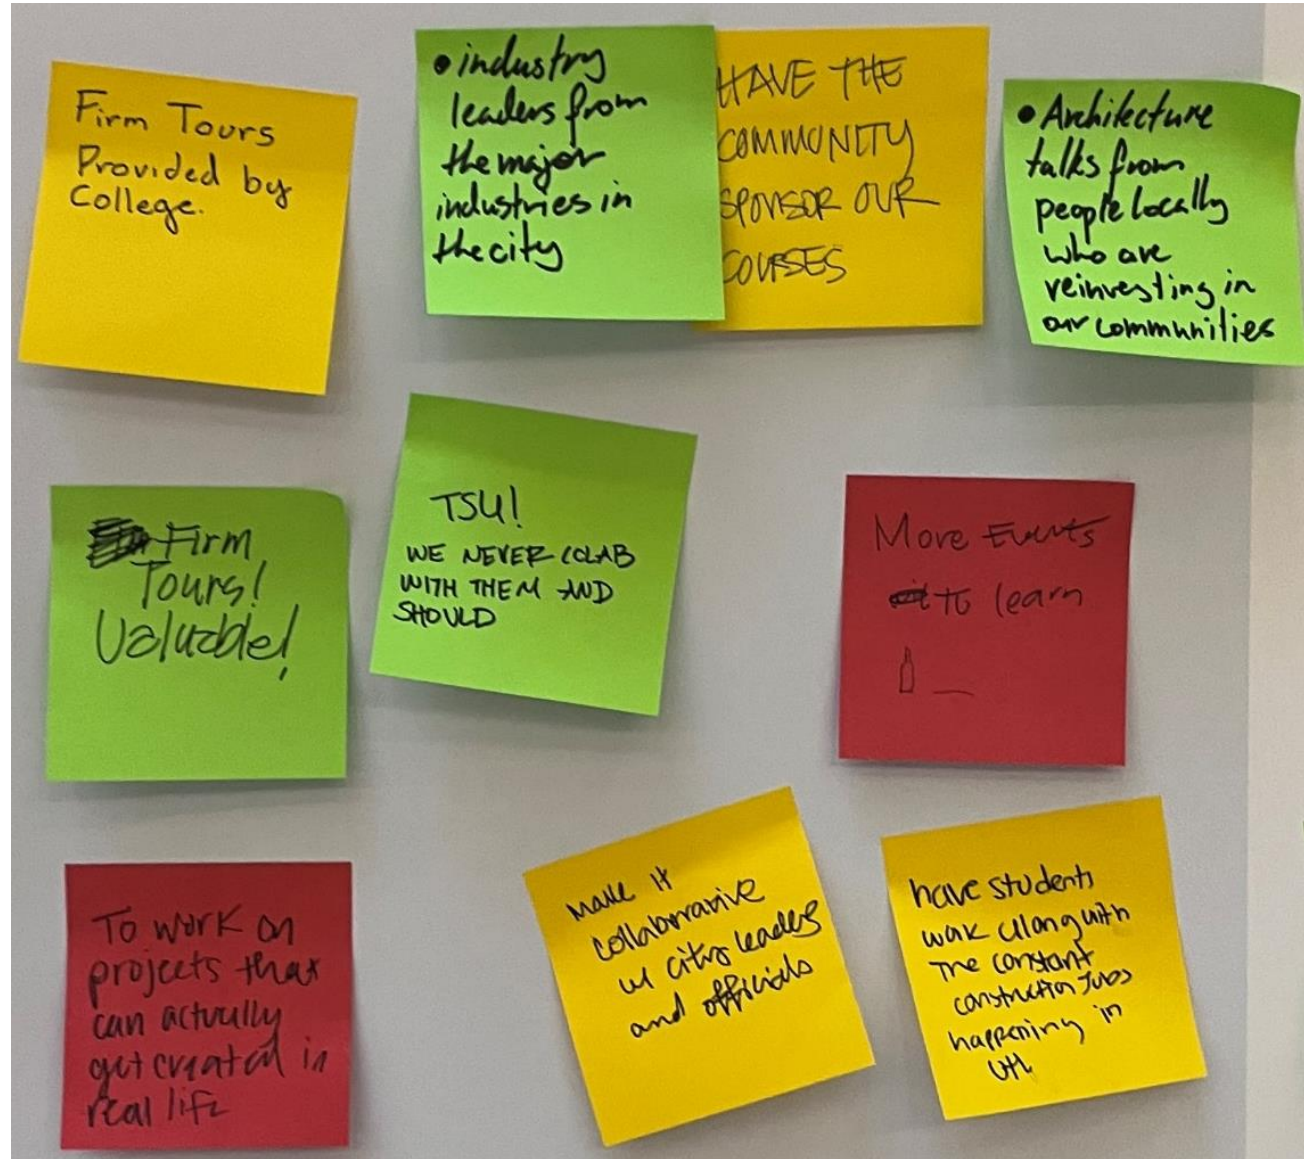 Firm Tours
Provided by
College.
• industry
leaders from
the major
industries in
the city
HAVE THE
COMMUNITY
SPONSOR OUR
COURSES
• Architecture
talks from
people locally
who are
reinvesting in
our communities
Firm
Tours!
Valuable!
TSU!
WE NEVER COLAB
WITH THEM AND
SHOULD
More Events
to learn
To work on
projects that
can actually
get created in
real life
make it
collaborative
w/ city leaders
and officials
have students
work along with
the constant
construction jobs
happening in